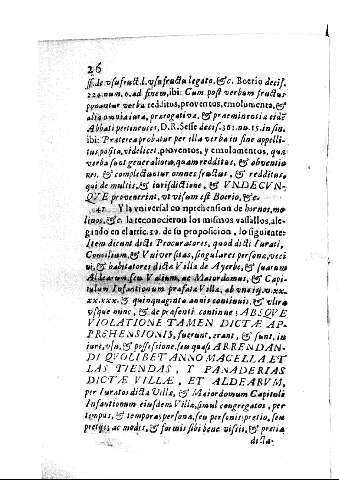 26
ff. de vsufruct. l. vsufructu legato, &c. Boerio decis.
224. num. 6. ad finem, ibi: Cum post verbum fructus
ponantur verba redditos, proventos, emolumenta, &
alia omnia iura, prærogativa, & præeminentia eidẽ
Abbati pertinentes, D.R. Sesse decis. 361. nu. 15. in fin.
ibi: Præterea probatur per illa verba in fine appelli-
tus posita, videlicet, proventos, y emolumentos, quæ
verba sunt generaliora, quam redditus, & obventio
nes, & complectuntur omnes fructus, & redditus,
qui de multis, & iurisdictione, & VNDECVN-
QVE provenerint, vt visum est Boerio, &c.
42 Y la vniversal comprehension de hornos, mo
linos, &c. la reconocieron los mismos vassallos, ale-
gando en el artic. 29. de su proposicion, lo siguiente:
Item dicunt dicti Procuratores, quod dicti Iurati,
Concilium, & Vniversitas, singulares persona, veci
ni, & habitatores dicta Villa de Ayerbe, & suarum
Aldearum, seu Vicium, ac Maiordomus, & Capi-
tulum Infantionum præfata Villa, ab vno
xx.xxx. & quinquaginta annis continuis, & vltra
vsque nunc, & de præsenti continue; ABSQVE
VIOLATIONE TAMEN DICTÆ AP-
PREHENSIONIS, fuerunt, erant, & sunt, in
iure, vsu, & possessione, seu quasi ARRENDAN-
DI QVOLIBET ANNO MACELLA, ET
LAS TIENDAS, Y PANADERIAS
DICTÆ VILLÆ, ET ALDEARVM,
per Iuratos dicta Villa, & Maiordomum Capituli
Infantionum eiusdem Villa, simul congregatos, per
tempus, & tempora; persona, seu personis; pretio, seu
pretijs; ac modis, & formis sibi bene visis, & pretia
dicta-